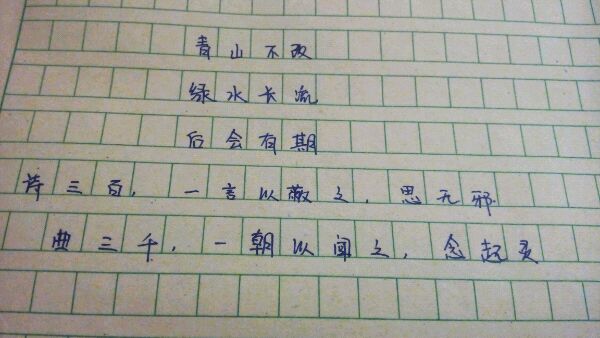 青山不改
绿水长流
后会有期
诗三百，一言以蔽之，思无邪.
曲三千，一朝以闻之，念起灵